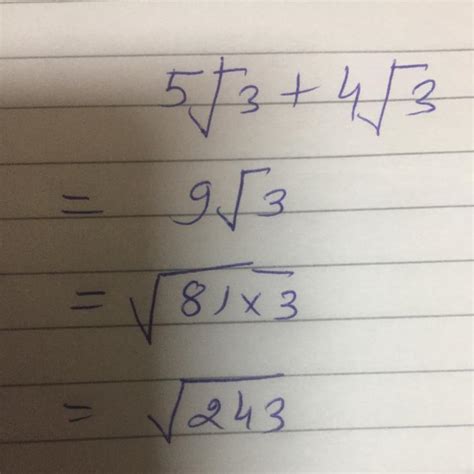 5√3 + 4√3
= 9√3
= √81×3
= √243